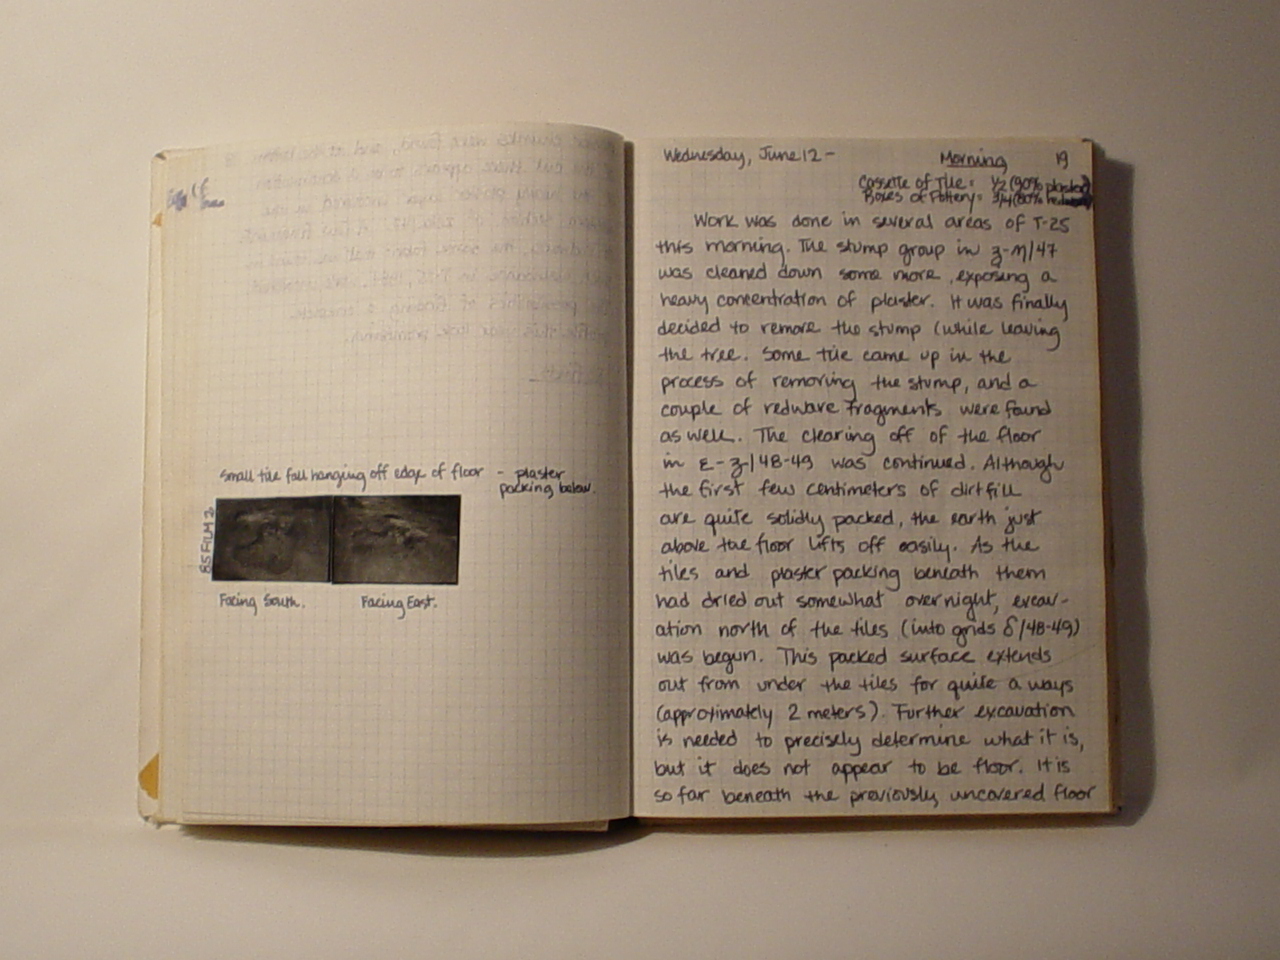 small tile fall hanging off edge of floor - plaster
packing below.
85 FILM 2
Facing South. Facing East.
Wednesday, June 12 - Morning 19
Cassette of Tile: 1/2 (90% plaster)
Boxes of Pottery: 3/4 (80%
Work was done in several areas of T-25
this morning. The stump group in
was cleaned down some more, exposing a
heavy concentration of plaster. It was finally
decided to remove the stump (while leaving
the tree. Some tile came up in the
process of removing the stump, and a
couple of redware fragments were found
as well. The clearing off of the floor
in E-Z/48-49 was continued. Although
the first few centimeters of dirt fill
are quite solidly packed, the earth just
above the floor lifts off easily. As the
tiles and plaster packing beneath them
had dried out somewhat overnight, excav-
ation north of the tiles (into grids δ/48-49)
was begun. This packed surface extends
out from under the tiles for quite a ways
(approximately 2 meters). Further excavation
is needed to precisely determine what it is,
but it does not appear to be floor. It is
so far beneath the previously uncovered floor